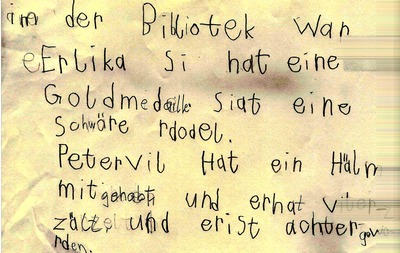 in der Bibliotek war
Erlika Si hat eine
Goldmedaille Siat eine
Schwäre rdodel.
Petervil Hat ein Hälm
mit gehabt und erhat
zält und erist achter
rden.